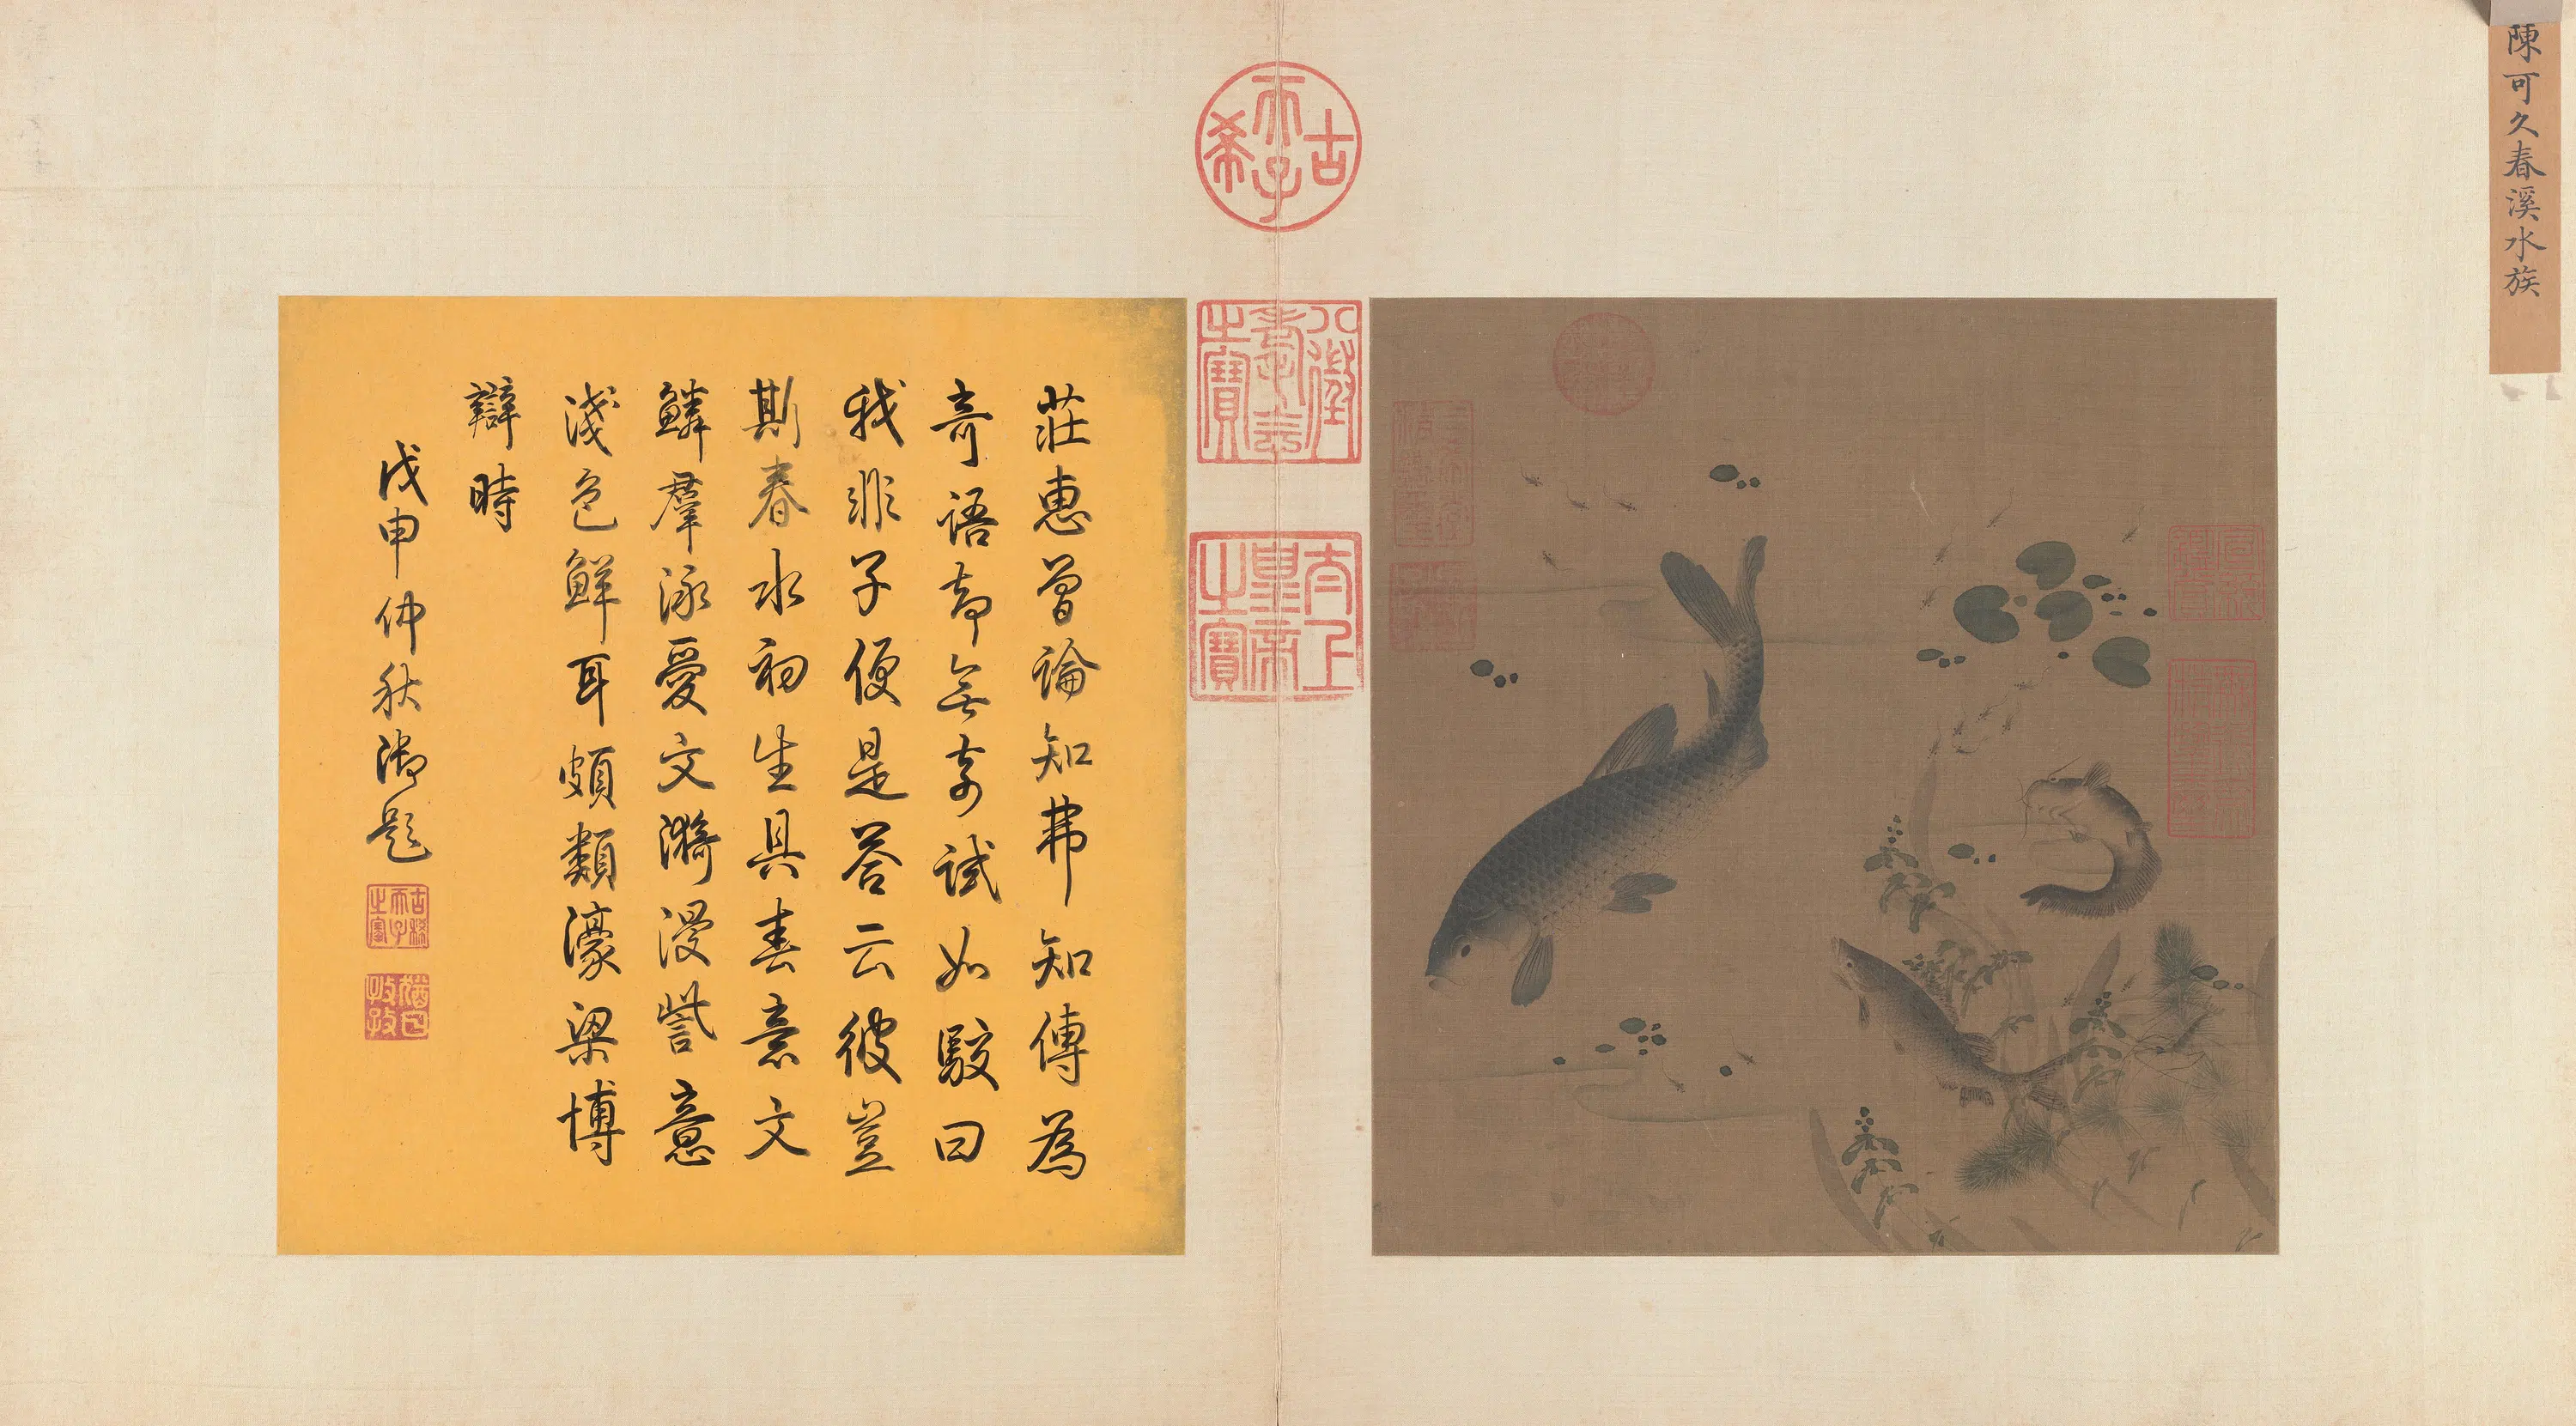 陳可久春溪水族
古希天子
八徵耄念之寶
太上皇帝之寶
莊惠曾論知弗知傳為
奇語却無奇試如駁曰
我非子便是答云彼豈
斯春水初生具春意文
鱗羣泳愛文漪漫訾意
淺色鮮耳頗類濠梁博
辯時
戊申仲秋御題
古稀天子之寶
猶日孜孜